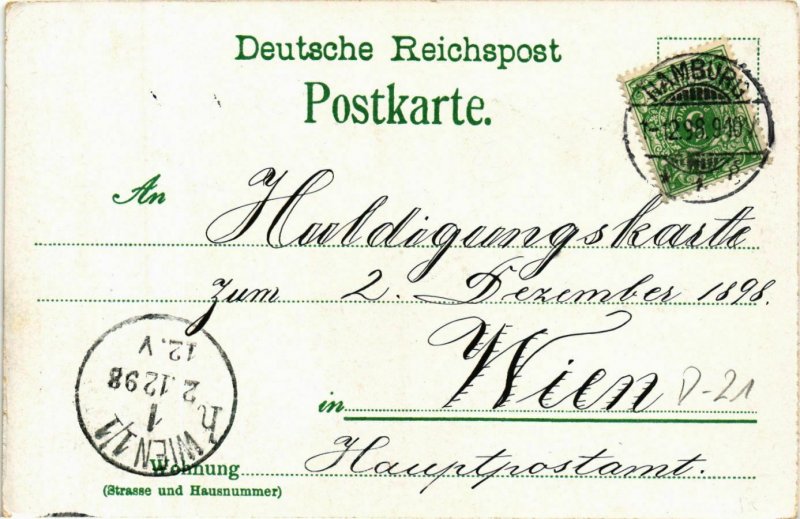 Deutsche Reichspost
Postkarte.
HAMBURG
1-12.98.9-10V.
An Huldigungskarte
zum 2. Dezember 1898.
in Wien
D-21
Wohnung Hauptpostamt.
(Strasse und Hausnummer)
WIEN 1/1
1
2.12.98
12.V